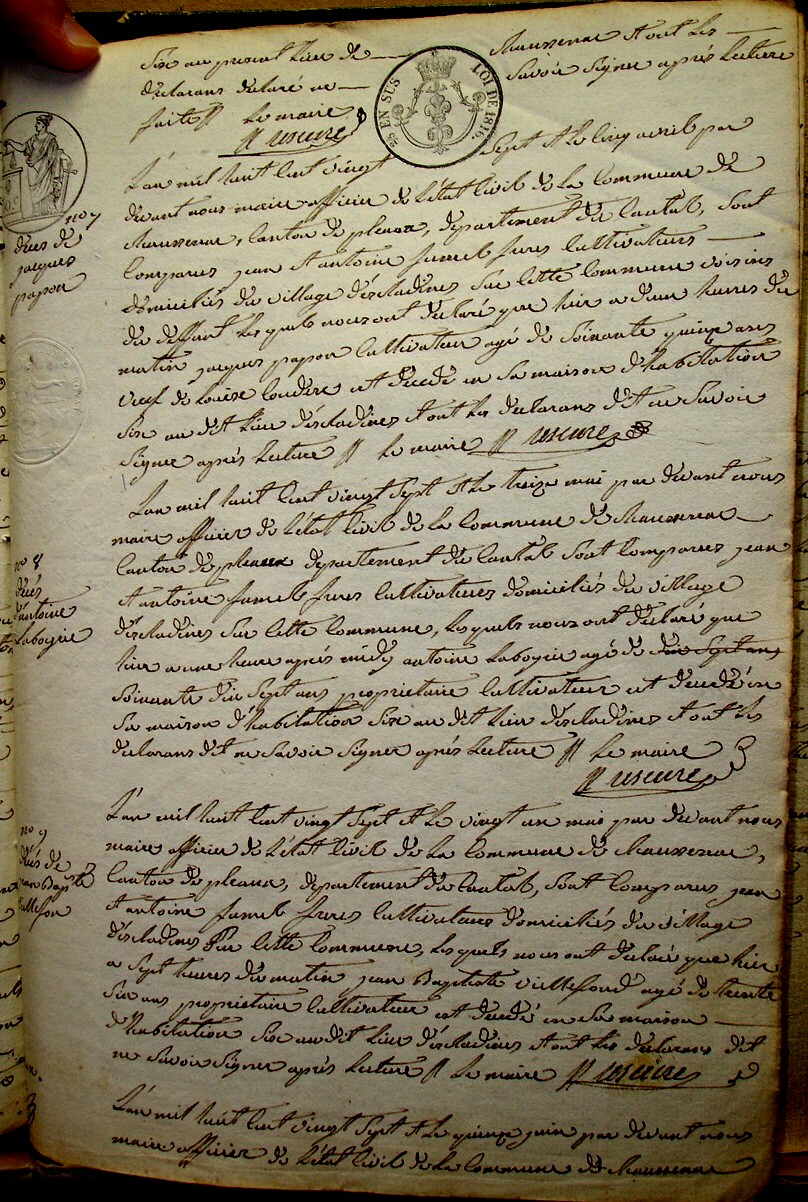 Sise au present lieu de Maussenac et ont les
declarans declaré ne savoir signer après lecture
faite // le maire
25 EN SUS LOI DE 1816.
L'an mil huit cent vingt Sept et le cinq avril par
devant nous maire officier de l'état civil de la Commune de
Maussenac, Canton de pleaux, département du Cantal, Sont
Comparus jean et antoine jamet freres Cultivateurs
domiciliés du village d'escladines Sur Cette Commune voisins
du deffunt lesquels nous ont declaré que hier a deux heures du
matin jacques papon Cultivateur agé de Soixante quinze ans
veuf de Louise est decedé en Sa maison d'habitation
Sise au dit lieu d'escladines et ont les declarans dit ne Savoir
Signer après lecture // le maire
no 7
décés de
jacques
papon
L'an mil huit Cent vingt Sept et le treize mai par devant nous
maire officier de l'état Civil de la Commune de Maussenac
Canton de pleaux departement du Cantal Sont Comparus jean
et antoine jamet freres Cultivateurs domiciliés du village
d'escladines Sur Cette Commune, lesquels nous ont declaré que
hier a une heure après midy antoine Laboyrie agé de dix Sept ans
Soixante dix Sept ans propriétaire Cultivateur est decedé en
Sa maison d'habitation Sise au dit lieu d'escladines et ont les
declarans dit ne Savoir Signer après lecture // le maire
no 8
décés
d'antoine
Laboyrie
L'an mil huit Cent vingt Sept et le vingt un mai par devant nous
maire officier de l'état Civil de la Commune de Maussenac,
Canton de pleaux, département du Cantal, Sont Comparus jean
et antoine jamet freres Cultivateurs domiciliés du village
d'escladines Sur Cette Commune, lesquels nous ont declaré que hier
a Sept heures du matin jean Baptiste Villefond agé de trente
Six ans propriétaire Cultivateur est decedé en Sa maison
d'habitation Sise au dit lieu d'escladines et ont les declarans dit
ne Savoir Signer après lecture // le maire
no 9
décés de
jean Bapte
villefon
L'an mil huit Cent vingt Sept et le quinze juin par devant nous
maire officier de l'état Civil de la Commune de Maussenac